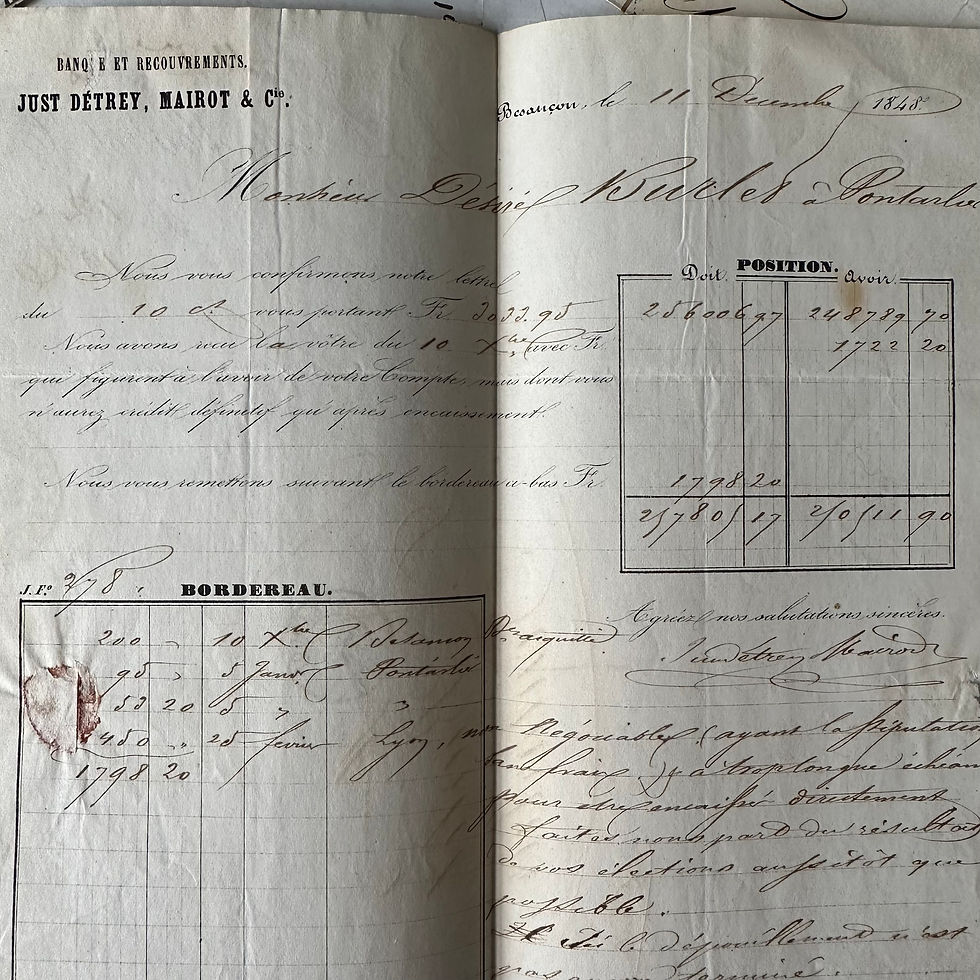 BANQUE ET RECOUVREMENTS.
JUST DÉTREY, MAIROT & Cie.
Besançon, le 11 Decembre 1848
Monsieur Désiré à Pontarlier
Nous vous confirmons notre lettre
du 10 ct vous portant Fr. 3033.95
Nous avons reçu la vôtre du 10 Xbre avec Fr.
qui figurent à l'avoir de votre Compte, mais dont vous
n'aurez crédit définitif qu'après encaissement.
Nous vous remettons suivant le bordereau a-bas Fr.
POSITION.
Doit. Avoir.
256006 97 248789 70
1722 20
1798 20
257805 17 250511 90
J. Fo. 278
BORDEREAU.
200 " 10 Xbre Besançon
95 " 5 Janv. Pontarlier
53 20 5 " "
1450 " 25 fevrier Lyon, non Négociable (ayant la stipulation
1798 20
Agréez nos salutations sincères.
Just Detrey Mairot
sans frais) & à trop longue échéan
pour être encaissé directement
faites nous part du résultat
de vos élections aussitôt que
possible.
Ici le dépouillement n'est
pas encore terminé.